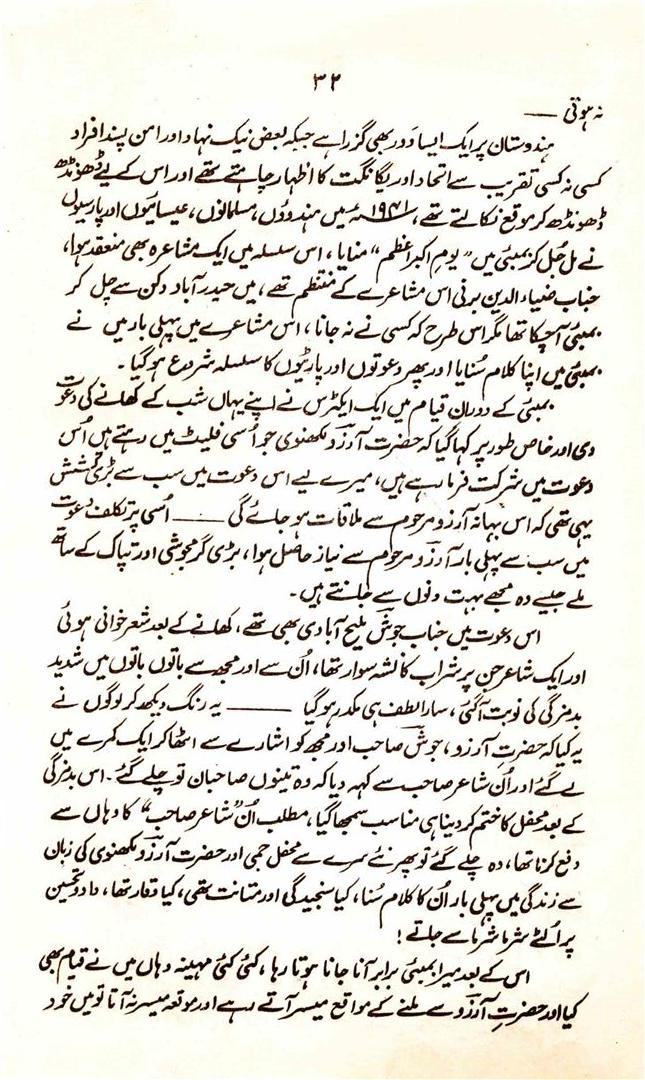 ۳۲
نہ ہوتی ——
ہندوستان پر ایک ایسا دَور بھی گزرا ہے جبکہ بعض نیک نہاد اور امن پسند افراد
کسی نہ کسی تقریب سے اتحاد اور یگانگت کا اظہار چاہتے تھے اور اس کے لیے ڈھونڈھ
ڈھونڈھ کر موقع نکالتے تھے، ۱۹۴۱ء میں ہندوؤں، مسلمانوں، عیسائیوں اور پارسیوں
نے مل جُل کر بمبئی میں "یومِ اکبر اعظم" منایا، اس سلسلہ میں ایک مشاعرہ بھی منعقد ہوا،
جناب ضیاء الدین برنی اس مشاعرے کے منتظم تھے، میں حیدرآباد دکن سے چل کر
بمبئی آچکا تھا مگر اس طرح کہ کسی نے نہ جانا، اس مشاعرے میں پہلی بار میں نے
بمبئی میں اپنا کلام سُنایا اور پھر دعوتوں اور پارٹیوں کا سلسلہ شروع ہوگیا۔
بمبئی کے دوران قیام میں ایک ایکٹرس نے اپنے یہاں شب کے کھانے کی دعوت
دی اور خاص طور پر کہا گیا کہ حضرت آرزو لکھنوی جو اُسی فلیٹ میں رہتے ہیں اُس
دعوت میں شرکت فرما رہے ہیں، میرے لیے اس دعوت میں سب سے بڑی کشش
یہی تھی کہ اس بہانہ آرزو مرحوم سے ملاقات ہو جائے گی —— اُسی پُرتکلف دعوت
میں سب سے پہلی بار آرزو مرحوم سے نیاز حاصل ہوا، بڑی گرمجوشی اور تپاک کے ساتھ
ملے جیسے وہ مجھے بہت دنوں سے جانتے ہیں۔
اس دعوت میں جناب جوش ملیح آبادی بھی تھے، کھانے کے بعد شعر خوانی ہوئی
اور ایک شاعر جن پر شراب کا نشہ سوار تھا، اُن سے اور مجھ سے باتوں باتوں میں شدید
بدمزگی کی نوبت آگئی، سارا لطف ہی مکدر ہوگیا —— یہ رنگ دیکھ کر لوگوں نے
یہ کیا کہ حضرت آرزو، جوش صاحب اور مجھ کو اشارے سے اٹھا کر ایک کمرے میں
لے گئے اور اُن شاعر صاحب سے کہہ دیا کہ وہ تینوں صاحبان تو چلے گئے۔ اس بدمزگی
کے بعد محفل کا ختم کر دینا ہی مناسب سمجھا گیا، مطلب اُن "شاعر صاحب" کا وہاں سے
دفع کرنا تھا، وہ چلے گئے تو پھر نئے سرے سے محفل جمی اور حضرت آرزو لکھنوی کی زبان
سے زندگی میں پہلی بار اُن کا کلام سُنا، کیا سنجیدگی اور متانت تھی، کیا وقار تھا، داد و تحسین
پر اُلٹے شرما شرما سے جاتے!
اس کے بعد میرا بمبئی برابر آنا جانا ہوتا رہا، کئی کئی مہینہ وہاں میں نے قیام بھی
کیا اور حضرتِ آرزو سے ملنے کے مواقع میسر آتے رہے اور موقعہ میسر نہ آتا تو میں خود